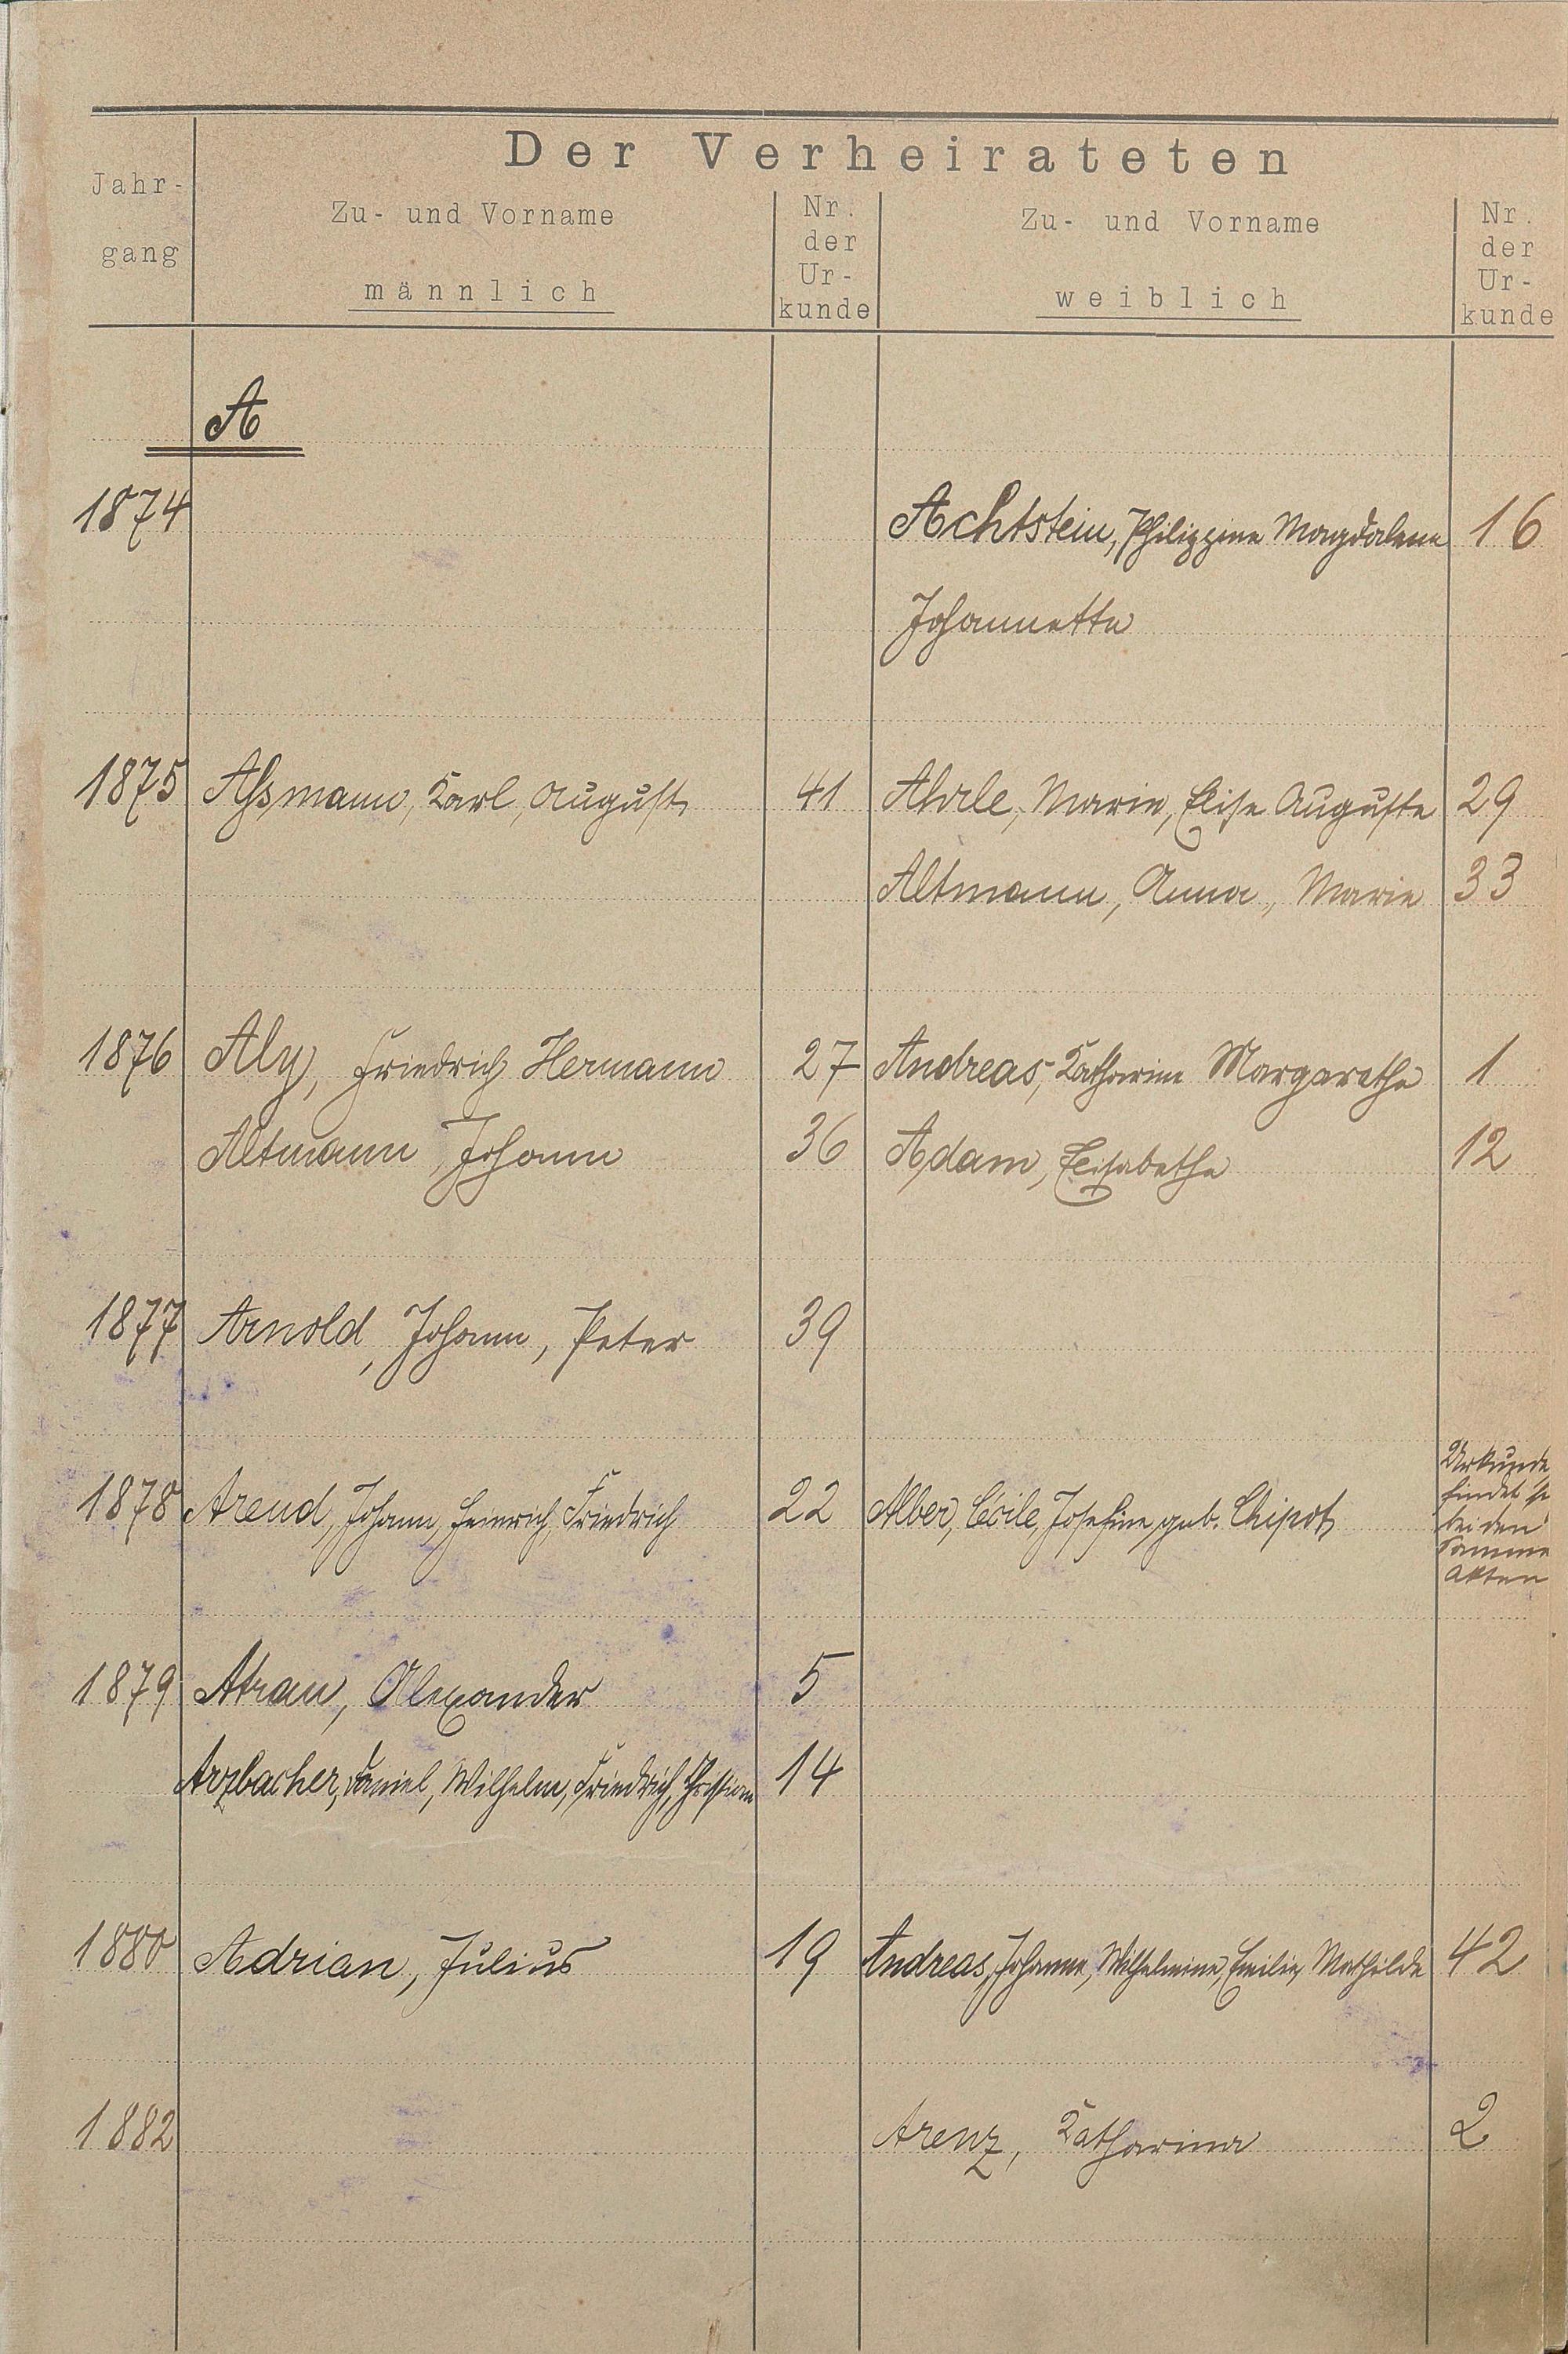 Der Verheirateten
Jahr-
gang
Zu- und Vorname
männlich
Nr.
der
Ur-
kunde
Zu- und Vorname
weiblich
Nr.
der
Ur-
kunde
A
1874 Achtstein, Philippine Magdalena 16
Johannetta
1875 Aßmann, Karl, August 41 Ahrle, Marie, Elise Auguste 29
Altmann, Anna, Marie 33
1876 Aly, Friedrich Hermann 27 Andreas, Katharine Margarethe 1
Altmann, Johann 36 Adam, Elisabethe 12
1877 Arnold, Johann, Peter 39
1878 Arend, Johann, Heinrich, Friedrich 22 Alber, Cécile, Josefine, geb. Chipot
Urkunde
findet
bei den
Akten
1879 Atran, Alexander 5
Arzbacher, Daniel, Wilhelm, Friedrich, Christian 14
1880 Adrian, Julius 19 Andreas, Johanna, Wilhelmine, Emilie, Mathilde 42
1882 Arenz, Katharina 2